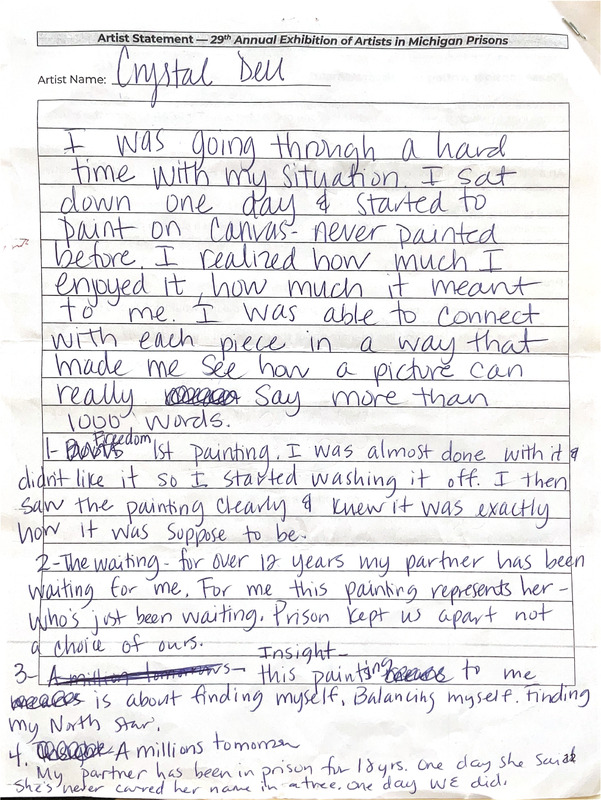 Artist Statement — 29th Annual Exhibition of Artists in Michigan Prisons
Artist Name: Crystal Dell
I was going through a hard
time with my situation. I sat
down one day & started to
paint on canvas- never painted
before. I realized how much I
enjoyed it, how much it meant
to me. I was able to connect
with each piece in a way that
made me see how a picture can
really say more than
1000 words.
1- Freedom 1st painting. I was almost done with it &
didn't like it so I started washing it off. I then
saw the painting clearly & knew it was exactly
how it was suppose to be.
2-The waiting- for over 12 years my partner has been
waiting for me. For me this painting represents her-
who's just been waiting. Prison kept us apart not
a choice of ours.
Insight-
3- A million tomorrows- this painting to me
is about finding myself. Balancing myself. finding
my North Star.
4. A millions tomorrow
My partner has been in prison for 18yrs. One day she said
she's never carved her name in a tree. One day WE did.